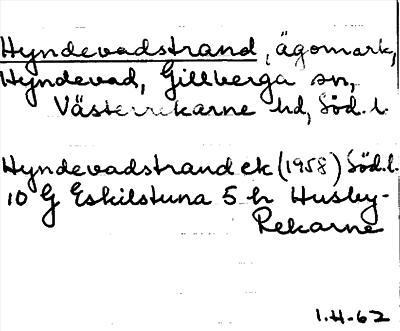 Hyndevadstrand, ägomark,
Hyndevad, Gillberga sn,
Västerrekarne hd, Söd. l.
Hyndevadstrand ek (1958) Söd. l.
10 G Eskilstuna 5 h Husby-
Rekarne
1.H-62